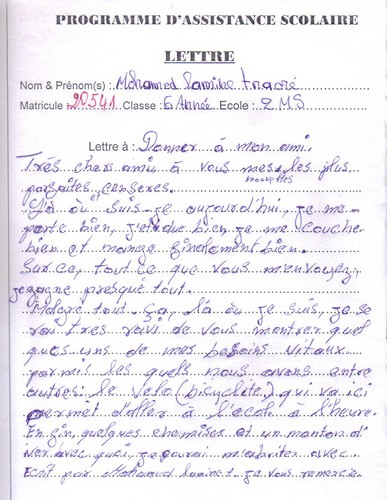 PROGRAMME D'ASSISTANCE SCOLAIRE
LETTRE
Nom & Prénom(s) : Mohamed Lamine traoré
Matricule : 20541 Classe : 6 Année Ecole : Z M S
Lettre à : Donner à mon ami.
Très chers amis à vous mes les plus
nouvelles
parfaites, et senseres.
Là où suis-je aujourd'hui, je me
porte bien, j'etudue bien, je me couche
bien et mange finalement bien.
Sur ce, tout ce que vous m'envoyez,
je gagne presque tout.
Malgré tout ça, là où je suis, je se
rou tres ravi de vous montrer quel
ques uns de mes besoins vitaux
parmis les quels nous avons entre
autres: le velo (bicyclite) qui va ici
permet d'aller à l'ecole à l'heure.
En fin, quelques chemises et un manton d'i
ver avec quoi, je pourai m'abriter avec
Ecrit par Mohamed Lamine t. je vous remercie.